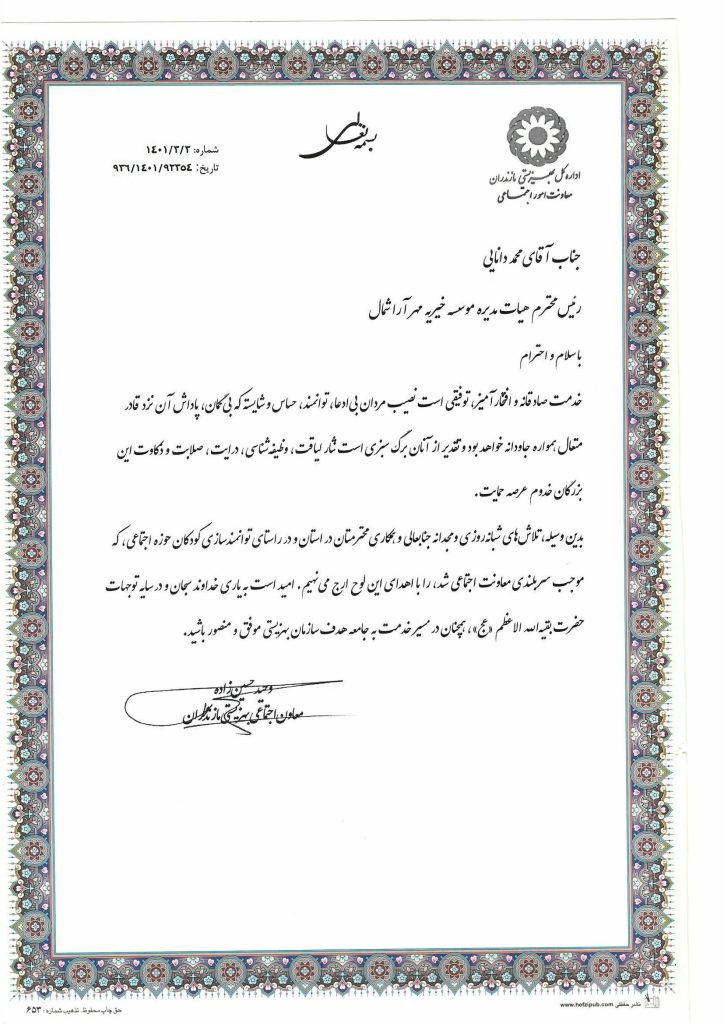 بسمه تعالی
اداره کل بهزیستی مازندران
معاونت امور اجتماعی
شماره: ۱۴۰۱/۳/۳
تاریخ: ۹۳۶/۱۴۰۱/۹۲۳۵۴
جناب آقای محمد دانایی
رئیس محترم هیات مدیره موسسه خیریه مهر آرا شمال
با سلام و احترام
خدمت صادقانه و افتخارآمیز، توفیقی است نصیب مردان بی‌ادعا، توانمند، حساس و شایسته که بی‌گمان، پاداش آن نزد قادر
متعال همواره جاودانه خواهد بود و تقدیر از آنان برگ سبزی است نثار لیاقت، وظیفه‌شناسی، درایت، صلابت و ذکاوت این
بزرگان خدوم عرصه حمایت.
بدین وسیله، تلاش‌های شبانه‌روزی و مجدانه جنابعالی و همکاری محترمتان در استان و در راستای توانمندسازی کودکان حوزه اجتماعی، که
موجب سربلندی معاونت اجتماعی شد، را با اهدای این لوح ارج می نهیم. امید است به یاری خداوند سبحان و در سایه توجهات
حضرت بقیه الله الاعظم «عج»، همچنان در مسیر خدمت به جامعه هدف سازمان بهزیستی موفق و منصور باشید.
وحید حسین زاده
معاون اجتماعی بهزیستی مازندران
نشر حفظی www.hefzipub.com
حق چاپ محفوظ. تذهیب شماره: ۶۵۳